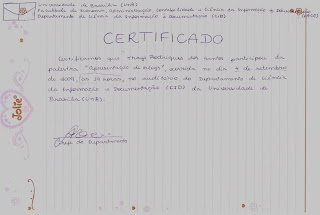 Universidade de Brasília (UnB)
Faculdade de Economia, Administração, Contabilidade e Ciência da Informação e Documentação
Departamento de Ciência da Informação e Documentação (CID)
CERTIFICADO
Certificamos que Thays Rodrigues dos Santos participou da
palestra "Apresentação de blogs", ocorrida no dia 4 de setembro
de 2009, às 19 horas, no auditório do Departamento de Ciência
da Informação e Documentação (CID) da Universidade de
Brasília (UnB).
Chefe do Departamento
Jolie